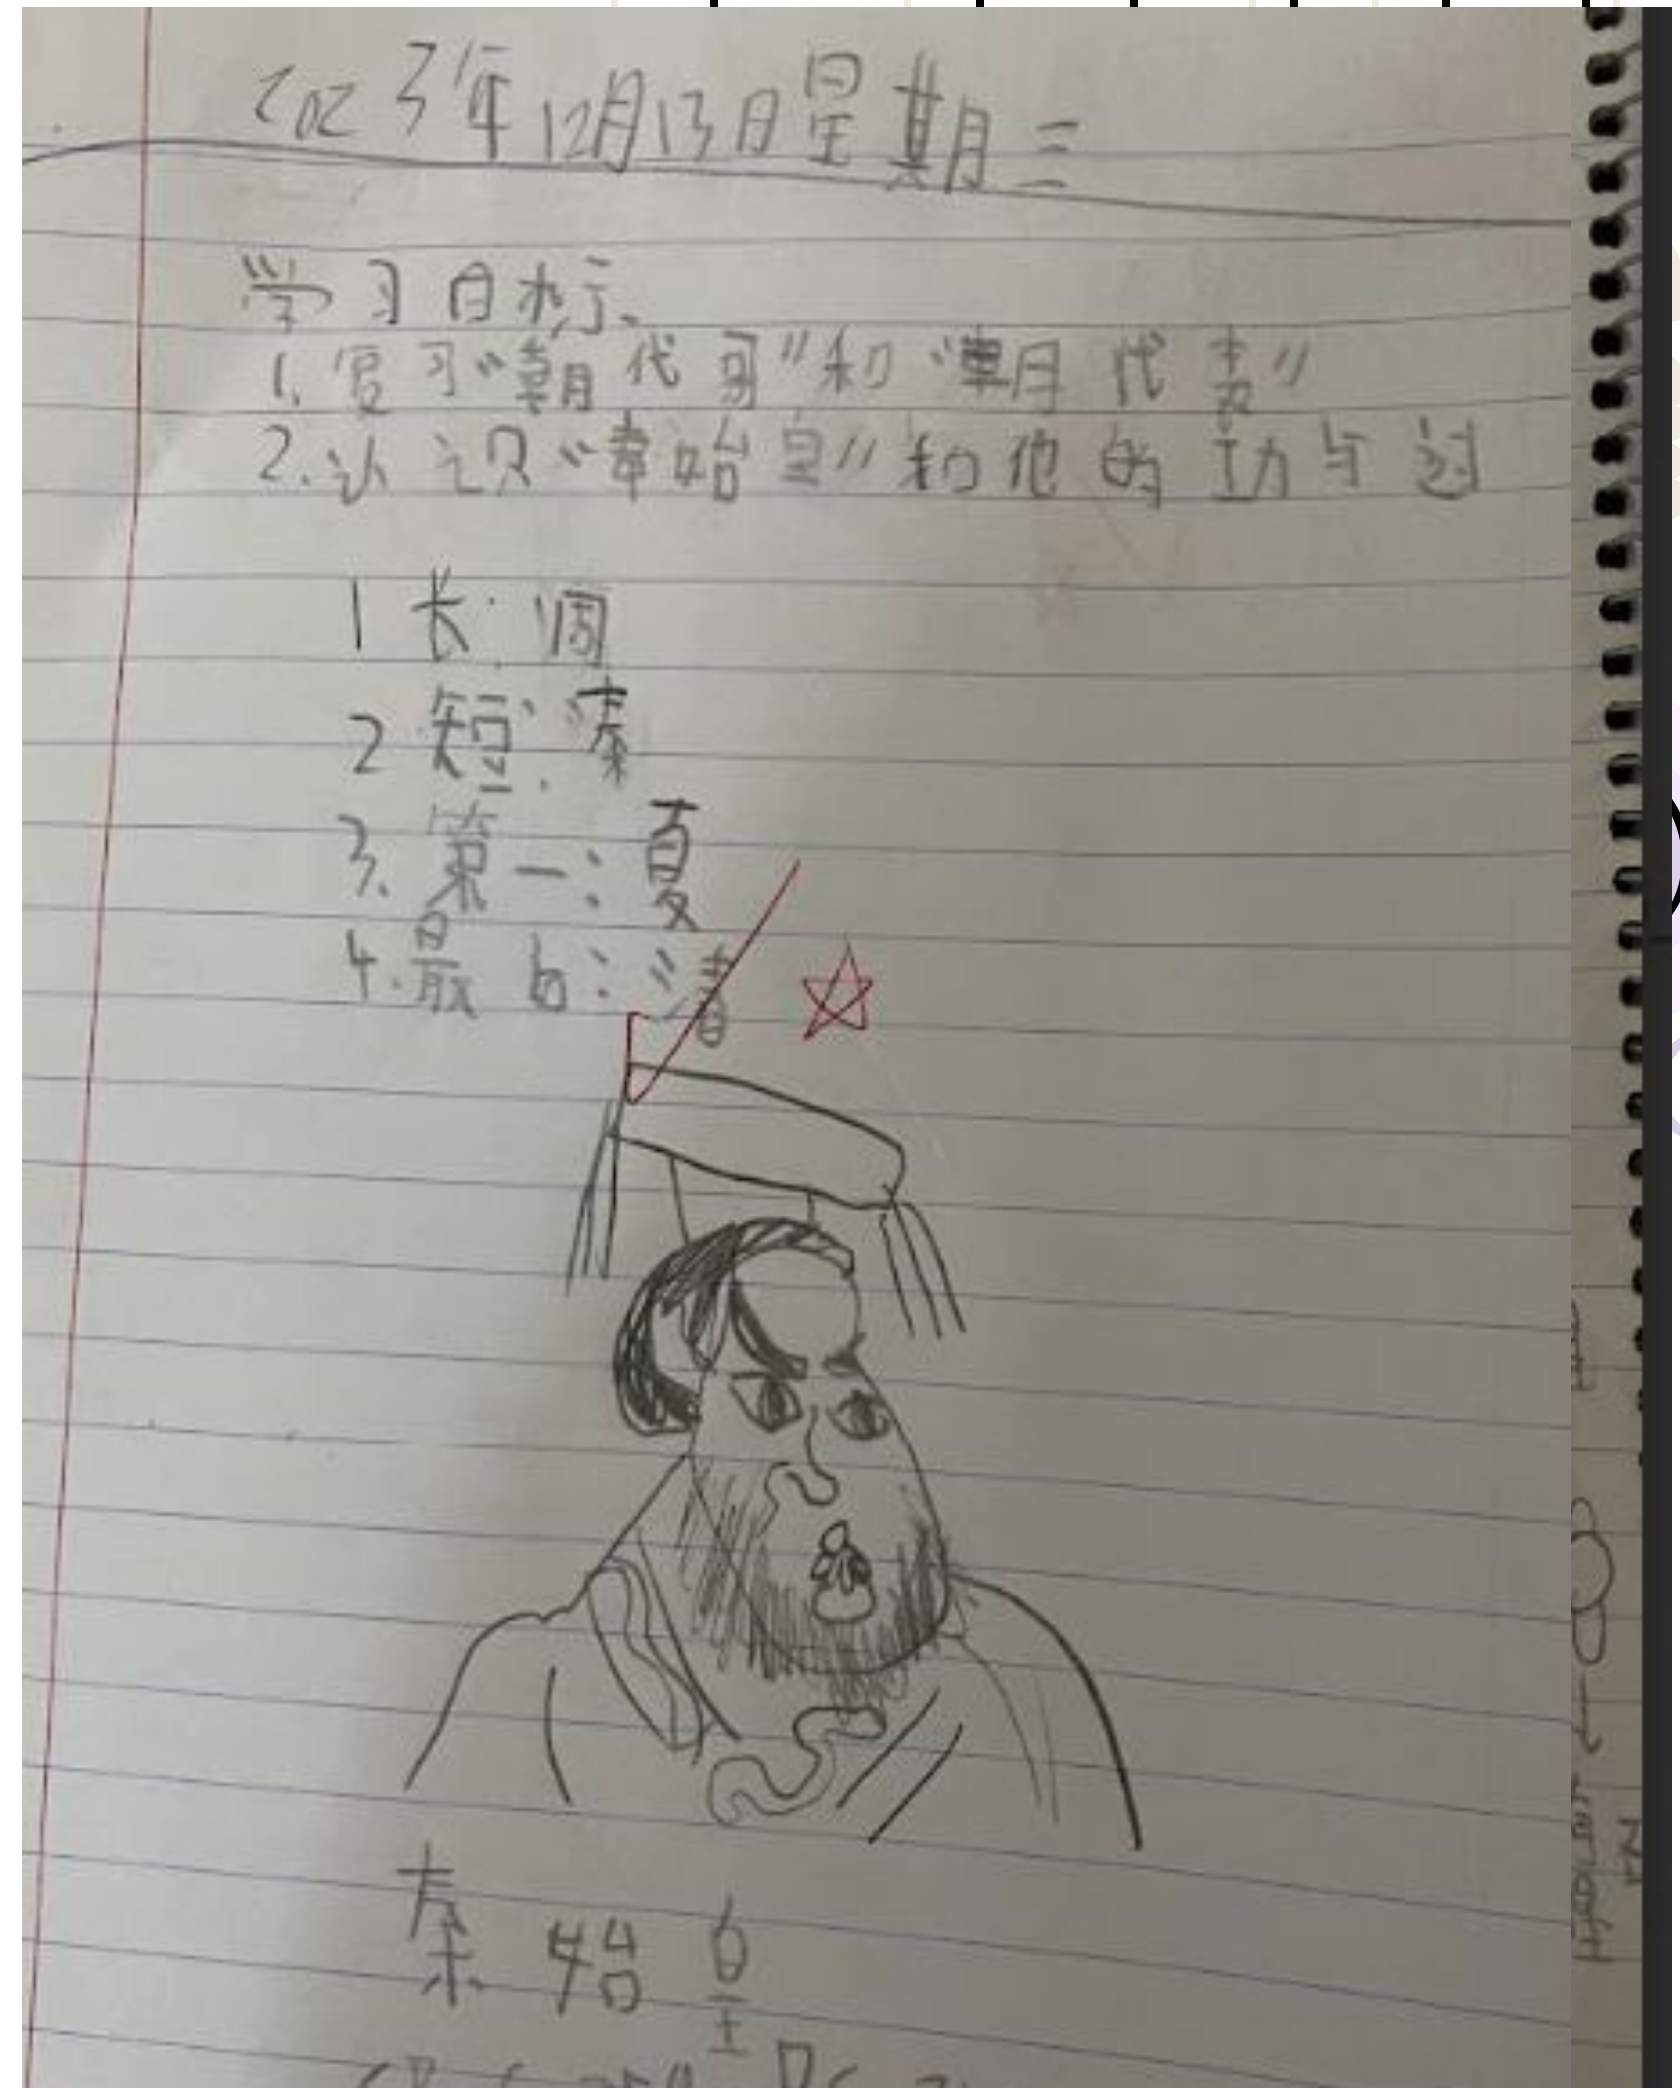 2023年12月13日星期三
学习目标:
1. 复习“朝代哥”和“朝代表”
2. 认识“秦始皇”和他的功与过
1 长: 周
2 短: 秦
3. 第一: 夏
4. 最后: 清
秦始皇